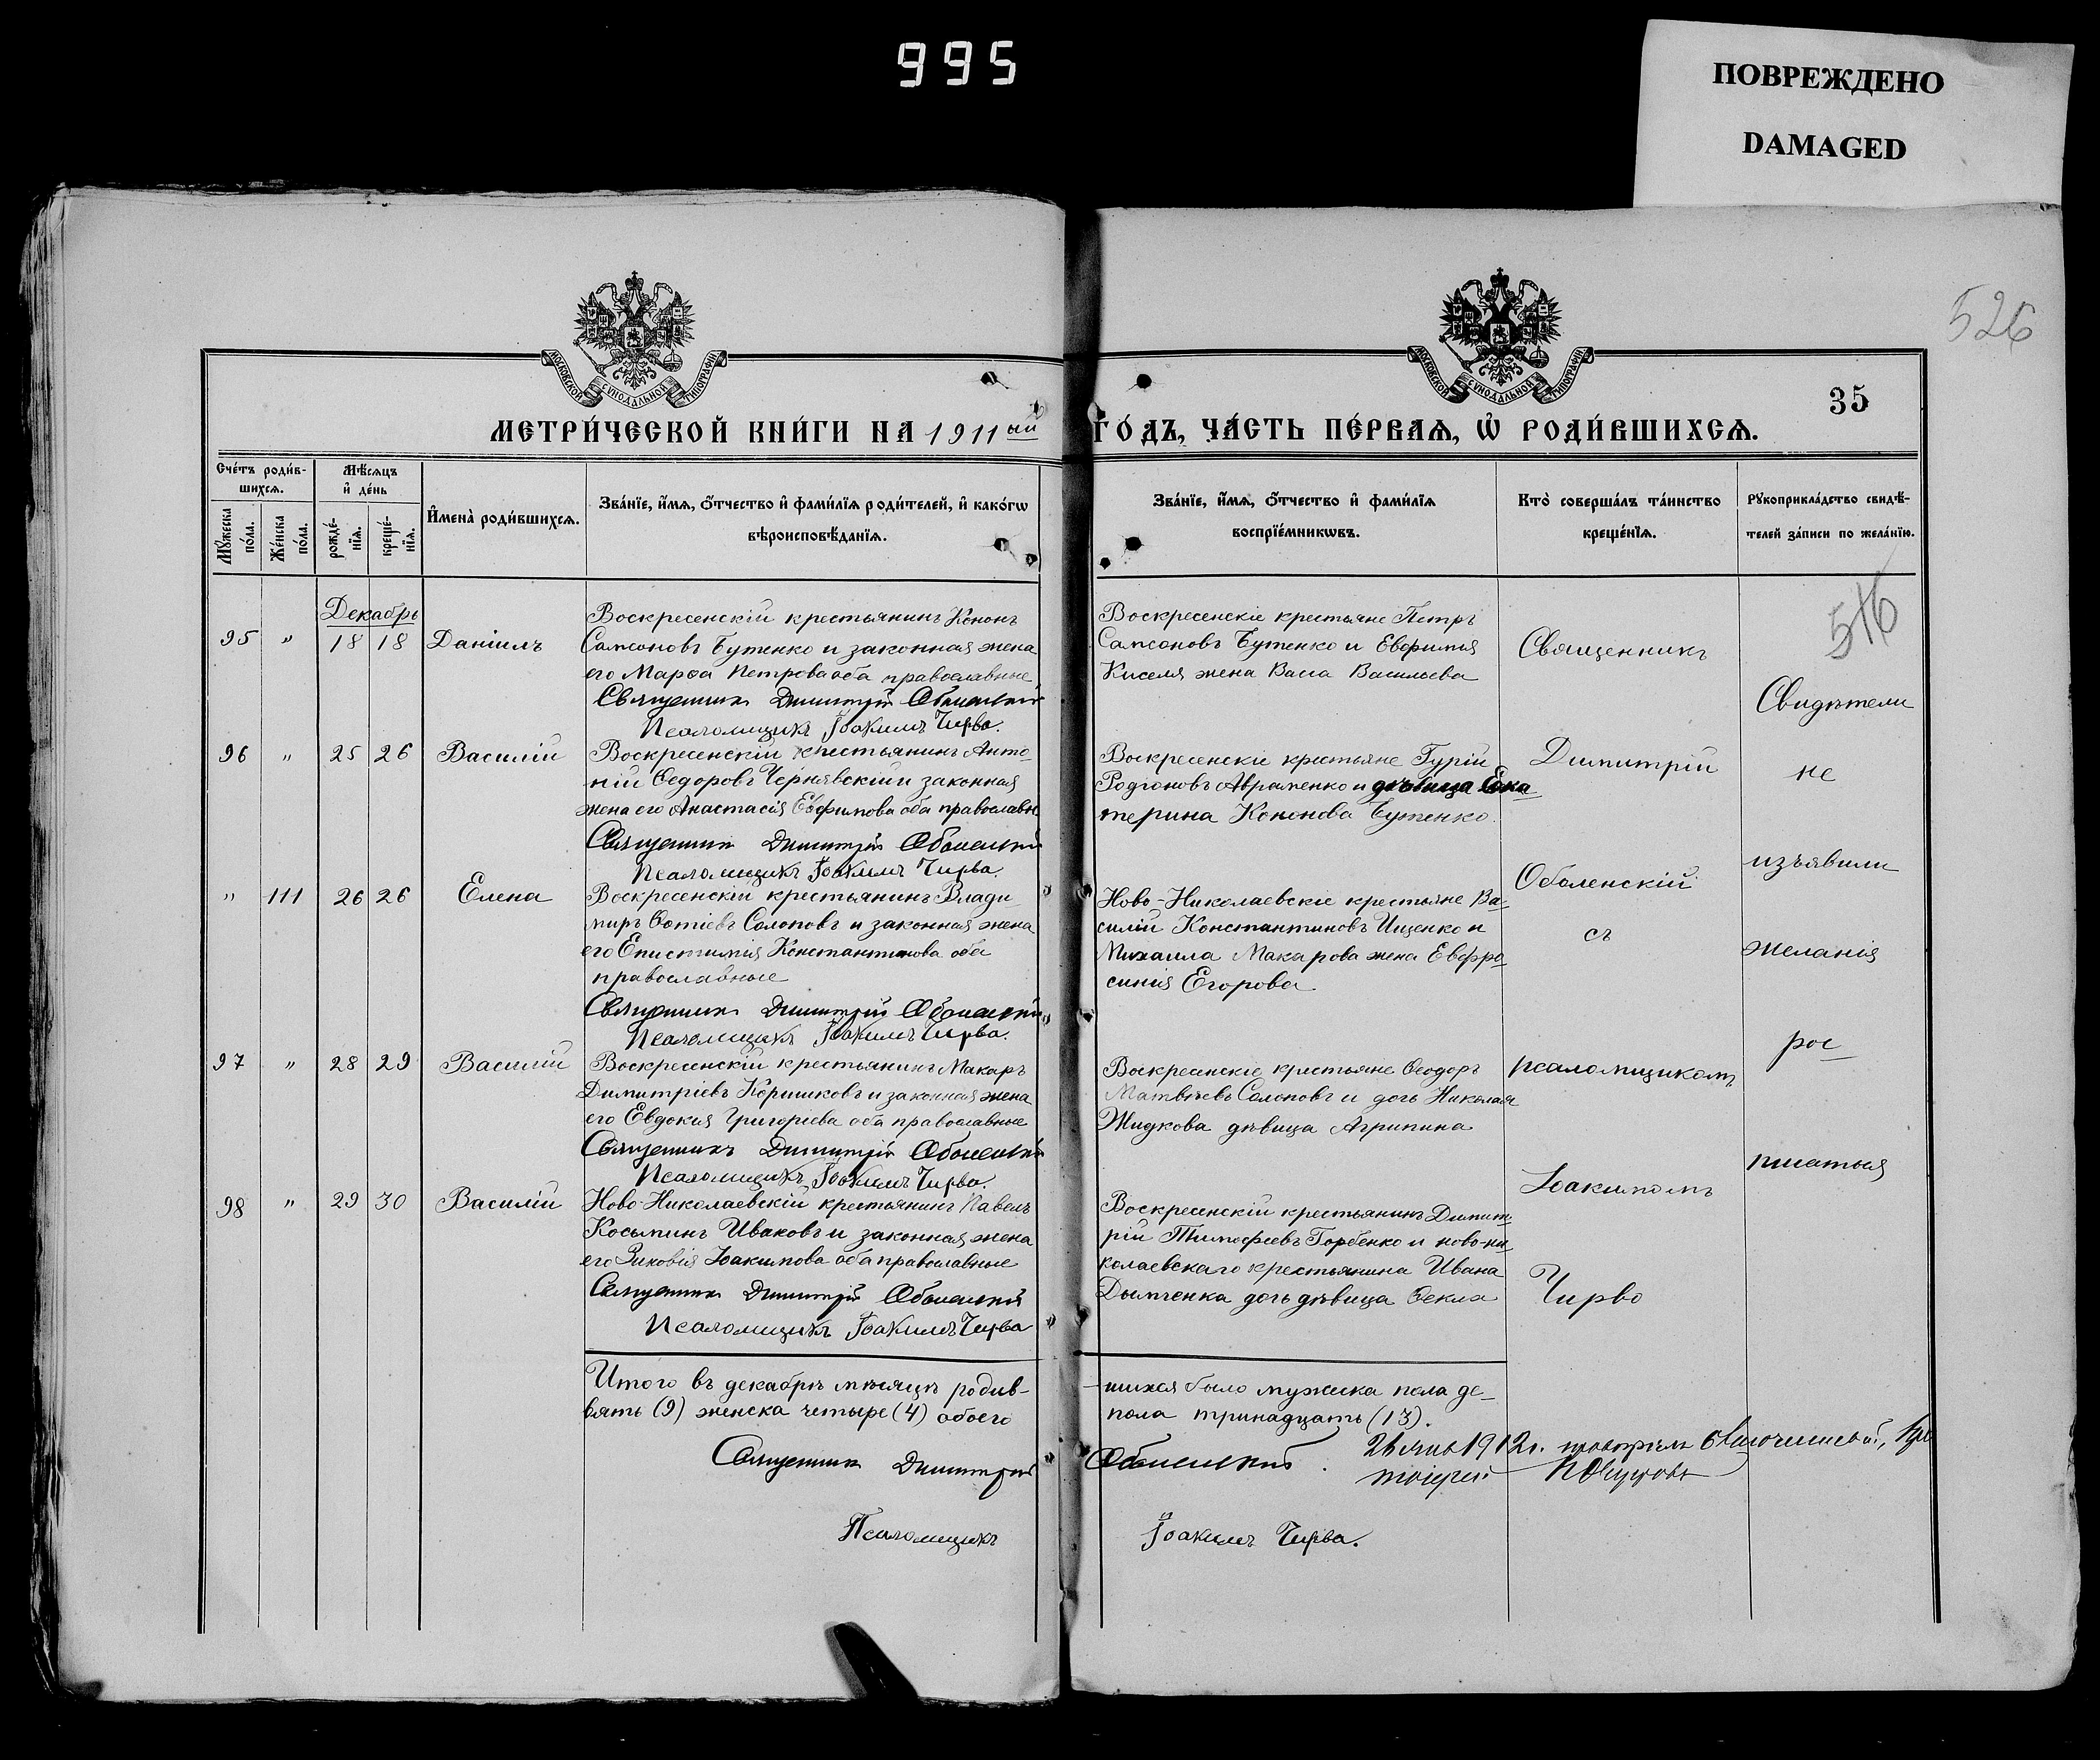 995
ПОВРЕЖДЕНО
DAMAGED
526
35
МОСКОВСКОЙ СѴНОДАЛЬНОЙ ТИПОГРАФІИ
МОСКОВСКОЙ СѴНОДАЛЬНОЙ ТИПОГРАФІИ
МЕТРИ́ЧЕСКОЙ КНИ́ГИ НА 1911ый ГО́ДЪ, ЧА́СТЬ ПЕ́РВАѦ, Ѡ҆ РОДИ́ВШИХСѦ.
Сче́тъ роди́в-
шихсѧ.
Мꙋ́жеска по́ла.
Же́нска по́ла.
Мѣ́сѧцъ
и҆ де́нь
рожде́-нїѧ.
креще́-нїѧ.
И҆мена̀ роди́вшихсѧ.
Зва́нїе, и҆́мѧ, ѻ҆́тчество и҆ фами́лїѧ роди́телей, и҆ како́гѡ
вѣроисповѣ́данїѧ.
Зва́нїе, и҆́мѧ, ѻ҆́тчество и҆ фами́лїѧ
воспрїе́мникѡвъ.
Кто̀ соверша́лъ та́инство
креще́нїѧ.
Рꙋкоприкла́дство свидѣ́-
телей за́писи по жела́нїю.
Декабрь
95 " 18 18 Даніилъ
Воскресенскій крестьянинъ Кононъ
Самсоновъ Бутенко и законная жена
его Марѳа Петрова оба православные
Священникъ Димитрій Оболенскій
Псаломщикъ Іоакимъ Чирва.
Воскресенскіе крестьяне Петръ
Самсоновъ Бутенко и Евфимія
Киселя жена Васса Васильева
96 " 25 26 Василій
Воскресенскій крестьянинъ Анто-
ній Ѳедоровъ Чернявскій и законная
жена его Анастасія Евфимова оба православн.
Священникъ Димитрій Оболенскій
Псаломщикъ Іоакимъ Чирва.
Воскресенскіе крестьяне Гурій
Родіоновъ Авраменко и дѣвица Ека-
терина Кононова Бутенко.
" 111 26 26 Елена
Воскресенскій крестьянинъ Влади-
миръ Ѳотіевъ Солоповъ и законная жена
его Епистимія Константинова оба
православные
Священникъ Димитрій Оболенскій
Псаломщикъ Іоакимъ Чирва.
Ново-Николаевскіе крестьяне Ва-
силій Константиновъ Ищенко и
Михаила Макарова жена Евфро-
синія Егорова
97 " 28 29 Василій
Воскресенскій крестьянинъ Макаръ
Димитріевъ Коршиковъ и законная жена
его Евдокія Григоріева оба православные
Священникъ Димитрій Оболенскій
Псаломщикъ Іоакимъ Чирва.
Воскресенскіе крестьяне Ѳеодоръ
Матвѣевъ Солоповъ и дочь Николая
Жидкова дѣвица Агрипина
98 " 29 30 Василій
Ново-Николаевскій крестьянинъ Павелъ
Косьминъ Иваковъ и законная жена
его Зиновія Іоакимова оба православные
Священникъ Димитрій Оболенскій
Псаломщикъ Іоакимъ Чирва
Воскресенскій крестьянинъ Димит-
рій Тимофеевъ Горбенко и ново-ни-
колаевскаго крестьянина Ивана
Дымченка дочь дѣвица Ѳекла
Священникъ
Димитрій
Оболенскій
съ
псаломщикомъ
Іоакимомъ
Чирво
516
Свидѣтели
не
изъявили
желанія
рос-
писаться
Итого въ декабрѣ мѣсяцѣ родив-
-шихся было мужеска пола де-
вять (9) женска четыре (4) обоего
пола тринадцать (13).
Священникъ Димитрій Оболенскій.
1912г.
Псаломщикъ Іоакимъ Чирва.